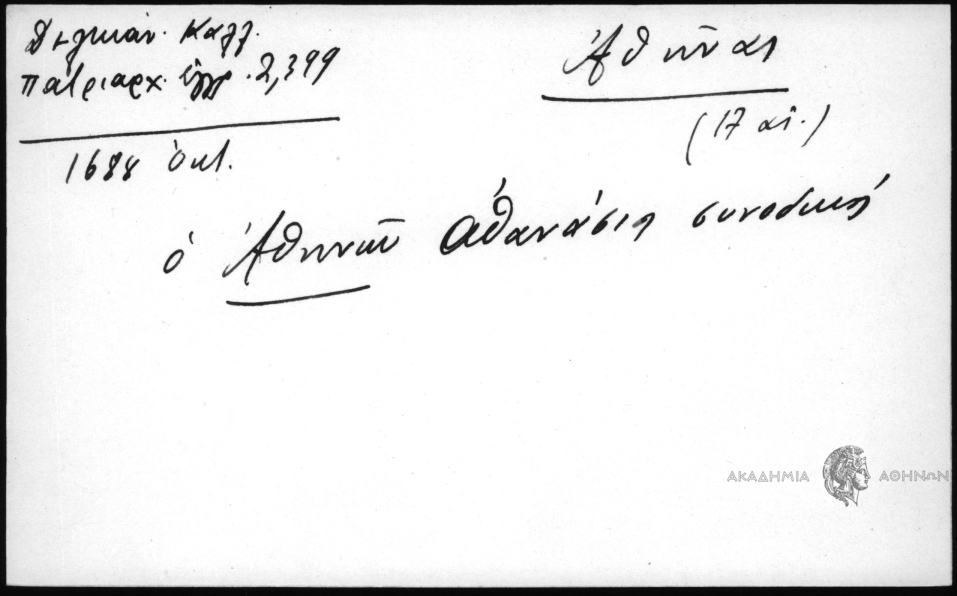 Δελικάν. Καλλ.
πατριαρχ. ἔγγρ. 2,399
Ἀθῆναι
(17 αἰ.)
1688 Ὀκτ.
ὁ Ἀθηνῶν Ἀθανάσιος συνοδικῶς
ΑΚΑΔΗΜΙΑ ΑΘΗΝΩΝ